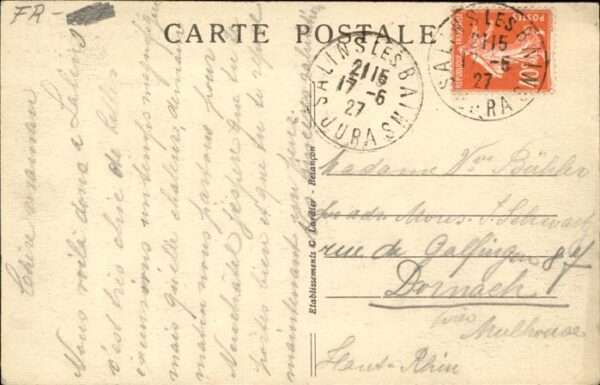 FR-
CARTE POSTALE
SALINS LES BAINS
2115
17-6
27
JURA
SALINS LES BAINS
2115
17-6
27
JURA
10
Chère maman
Nous voilà donc à Salins
c'est très chic de belles
excursions un temps magnifique
mais quelle chaleur, demain
matin nous partons pour
Neuchâtel j'espère que tu te
portes bien et que tu te
maintenant
Etablissements C. Lardier - Besançon
Madame Vve Bühler
adr. Mons. J. Schwartz
rue de Galfingen 87
Dornach
près Mulhouse
Haut-Rhin